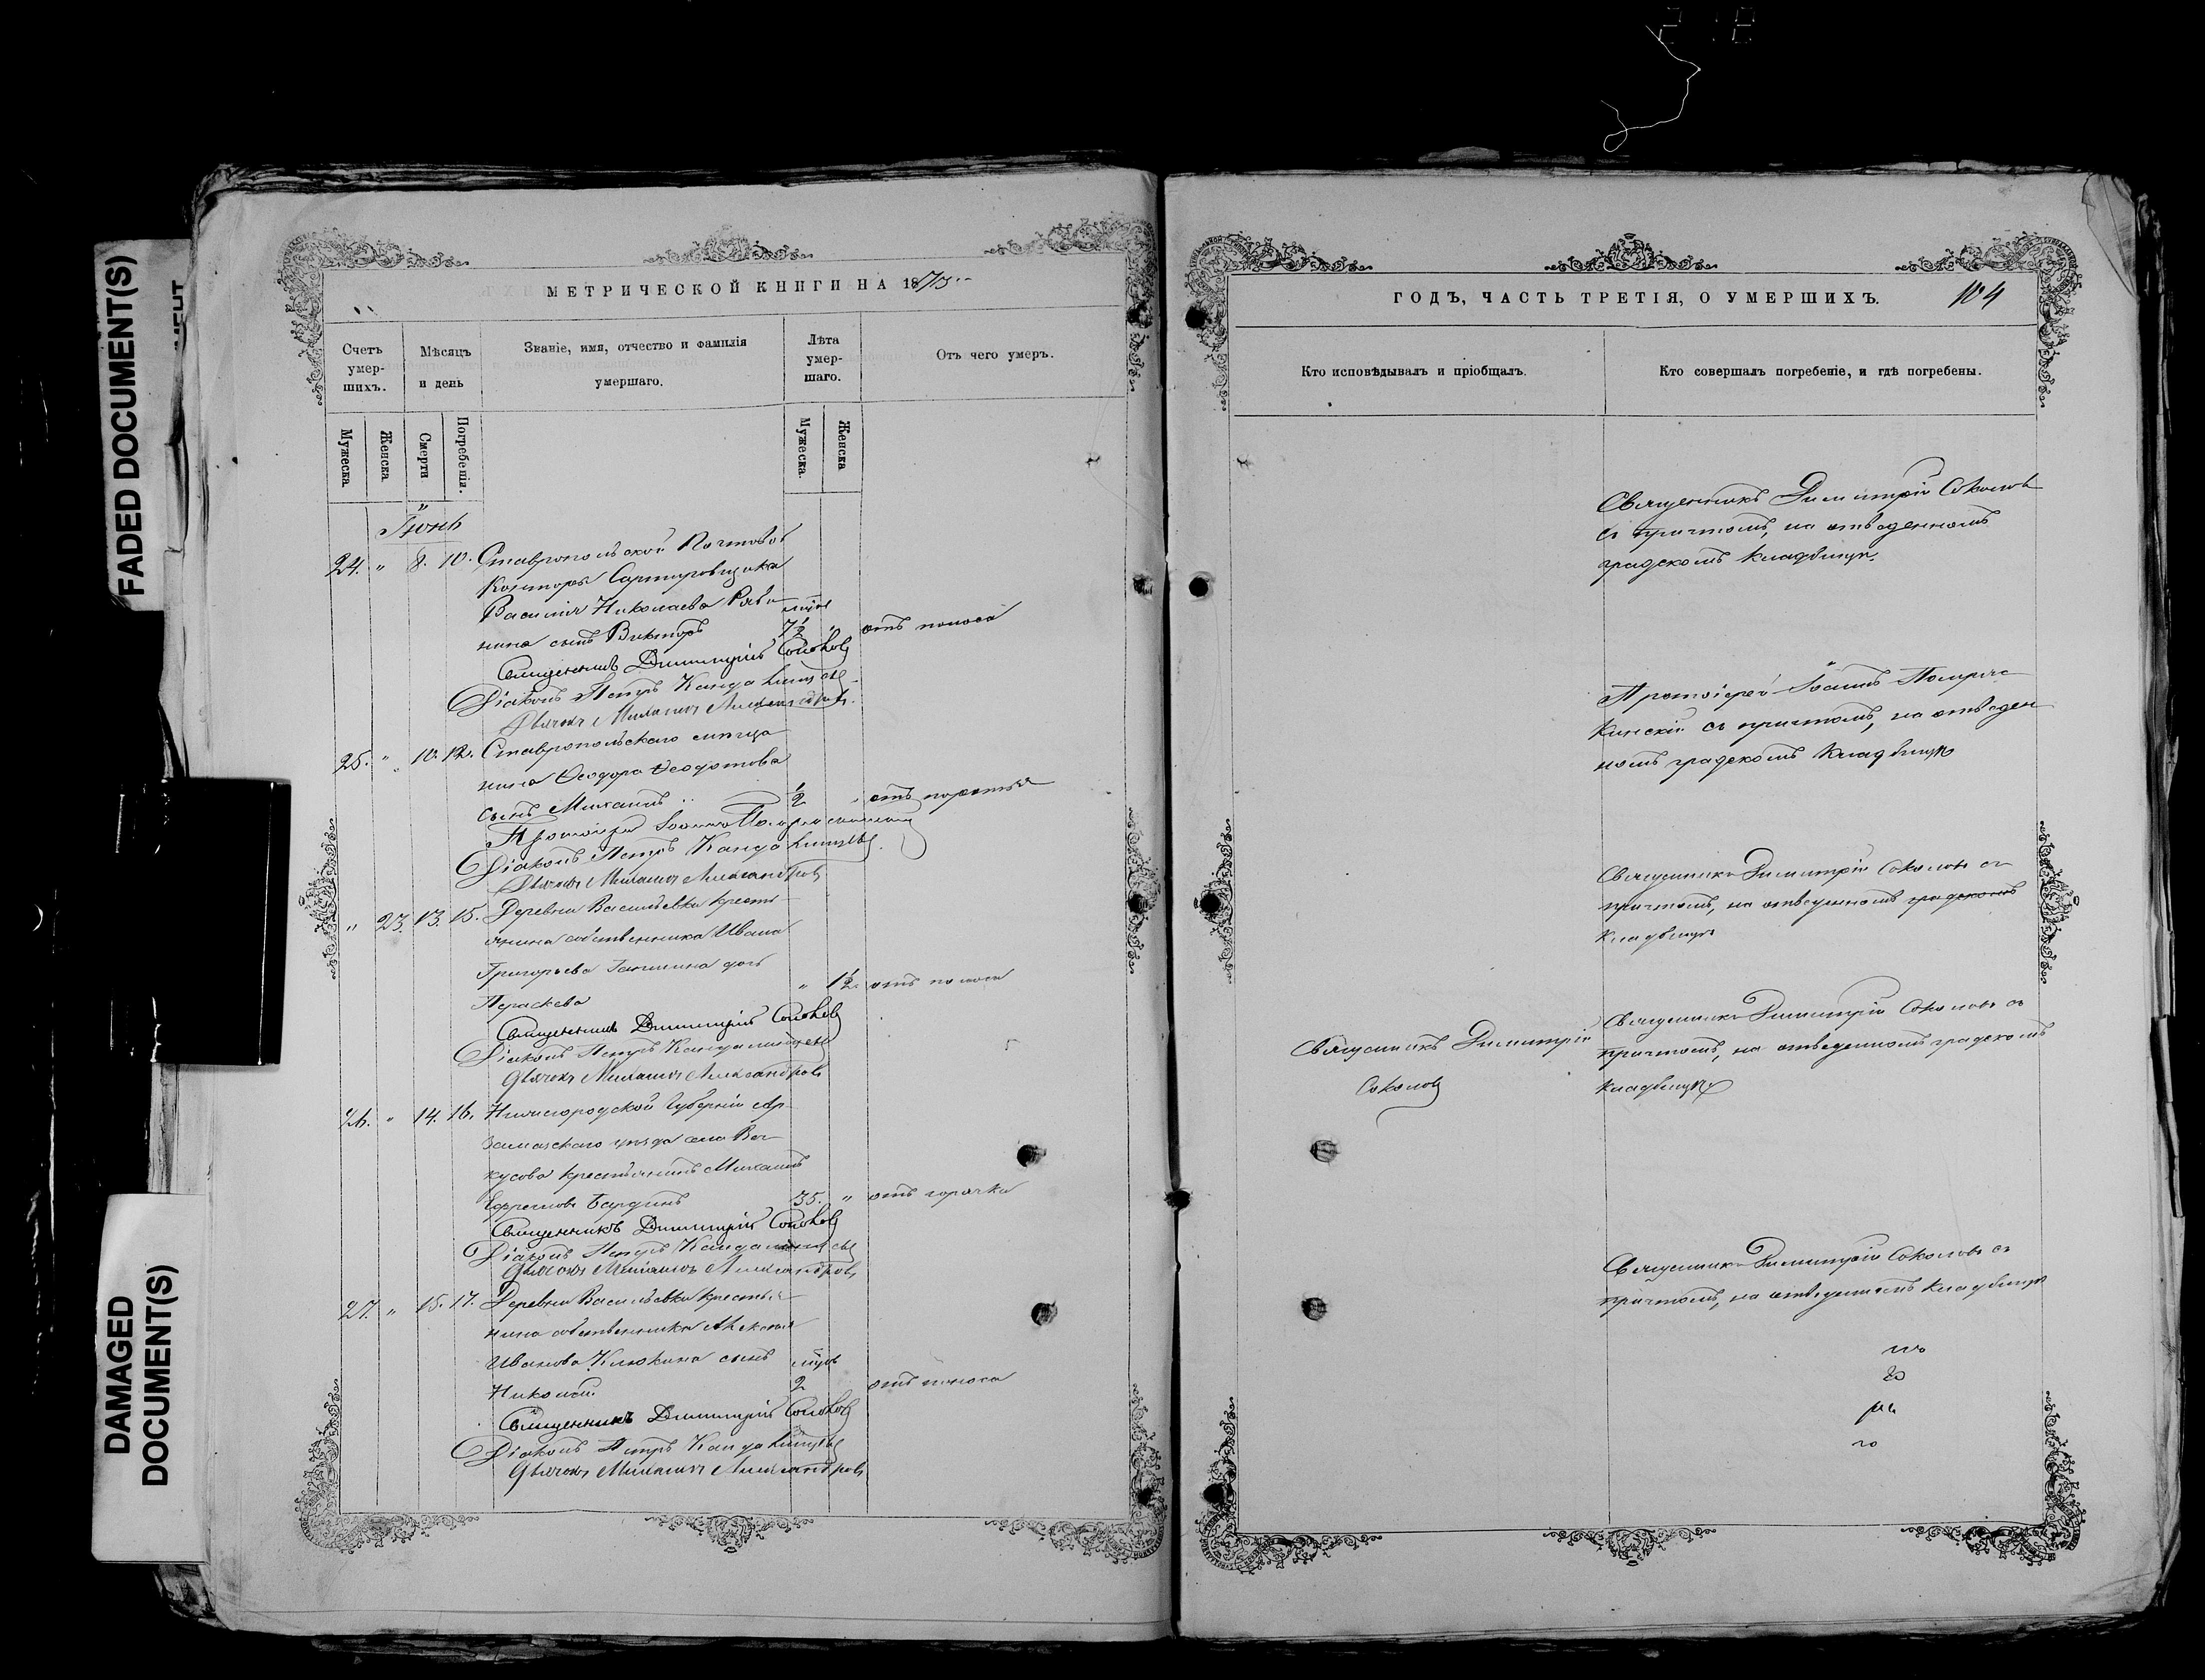 FADED DOCUMENT(S)
DAMAGED
DOCUMENT(S)
МЕТРИЧЕСКОЙ КНИГИ НА 1875
Счетъ умер-шихъ.
Мѣсяцъ и день
Званіе, имя, отчество и фамилія умершаго.
Лѣта умер-шаго.
Отъ чего умеръ.
Мужеска
Женска
Смерти
Погребенія.
Мужеска
Женска
Іюнь
24. " 8. 10. Ставропольской Почтовой
Конторы Сартировщика
Василія Николаева
нина сынъ Викторъ 7½ отъ поноса
Священникъ Димитрій Соколовъ
Діаконъ Петръ
Дьячекъ Александровъ
25. " 10. 12. Ставропольскаго мѣща
нина Ѳеодора Ѳеодотова
сынъ Михаилъ ½ отъ
Протоіерей Іоаннъ
Діаконъ Петръ
Дьячекъ Александровъ
" 23. 13. 15. Деревни Васильевки кресть
янина собственника Ивана
Григорьева дочь
Параскева " 1½ отъ поноса
Священникъ Димитрій Соколовъ
Діаконъ Петръ
Дьячекъ Александровъ
26. " 14. 16. Нижегородской Губерніи Ар
замасскаго уѣзда села
кусова крестьянинъ Михаилъ
Ефремовъ 35. " отъ горячки
Священникъ Димитрій Соколовъ
Діаконъ Петръ
Дьячекъ Александровъ
27. " 15. 17. Деревни Васильевки крестья
нина собственника
Иванова Клюкина сынъ
Николай 2 отъ поноса
Священникъ Димитрій Соколовъ
Діаконъ Петръ
Дьячекъ Александровъ
ГОДЪ, ЧАСТЬ ТРЕТІЯ, О УМЕРШИХЪ. 104
Кто исповѣдывалъ и пріобщалъ.
Кто совершалъ погребеніе, и гдѣ погребены.
Священникъ Димитрій Соколовъ
съ причтомъ, на отведенномъ
градскомъ кладбищѣ.
Протоіерей Іоаннъ
съ причтомъ, на отведен
номъ градскомъ кладбищѣ
Священникъ Димитрій Соколовъ съ
причтомъ, на отведенномъ градскомъ
кладбищѣ
Священникъ Димитрій
Соколовъ
Священникъ Димитрій Соколовъ съ
причтомъ, на отведенномъ градскомъ
кладбищѣ
Священникъ Димитрій Соколовъ съ
причтомъ, на отведенномъ кладбищѣ
го